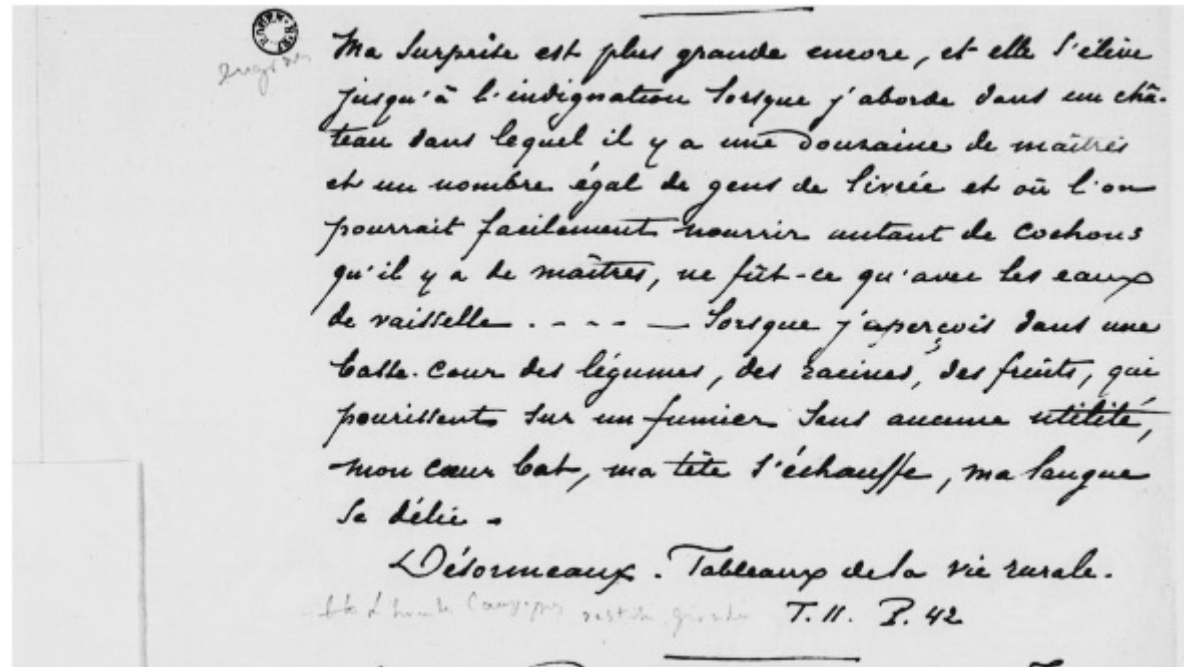 Ma surprise est plus grande encore, et elle s'élève
jusqu'à l'indignation lorsque j'aborde dans un châ-
teau dans lequel il y a une douzaine de maîtres
et un nombre égal de gens de livrée et où l'on
pourrait facilement nourrir autant de cochons
qu'il y a de maîtres, ne fût-ce qu'avec les eaux
de vaisselle . - - - — lorsque j'aperçois dans une
basse-cour des légumes, des racines, des fruits, qui
pourissent sur un fumier sans aucune utilité,
mon cœur bat, ma tête s'échauffe, ma langue
se délie.
Désormeaux. Tableaux de la vie rurale.
T. II. P. 42